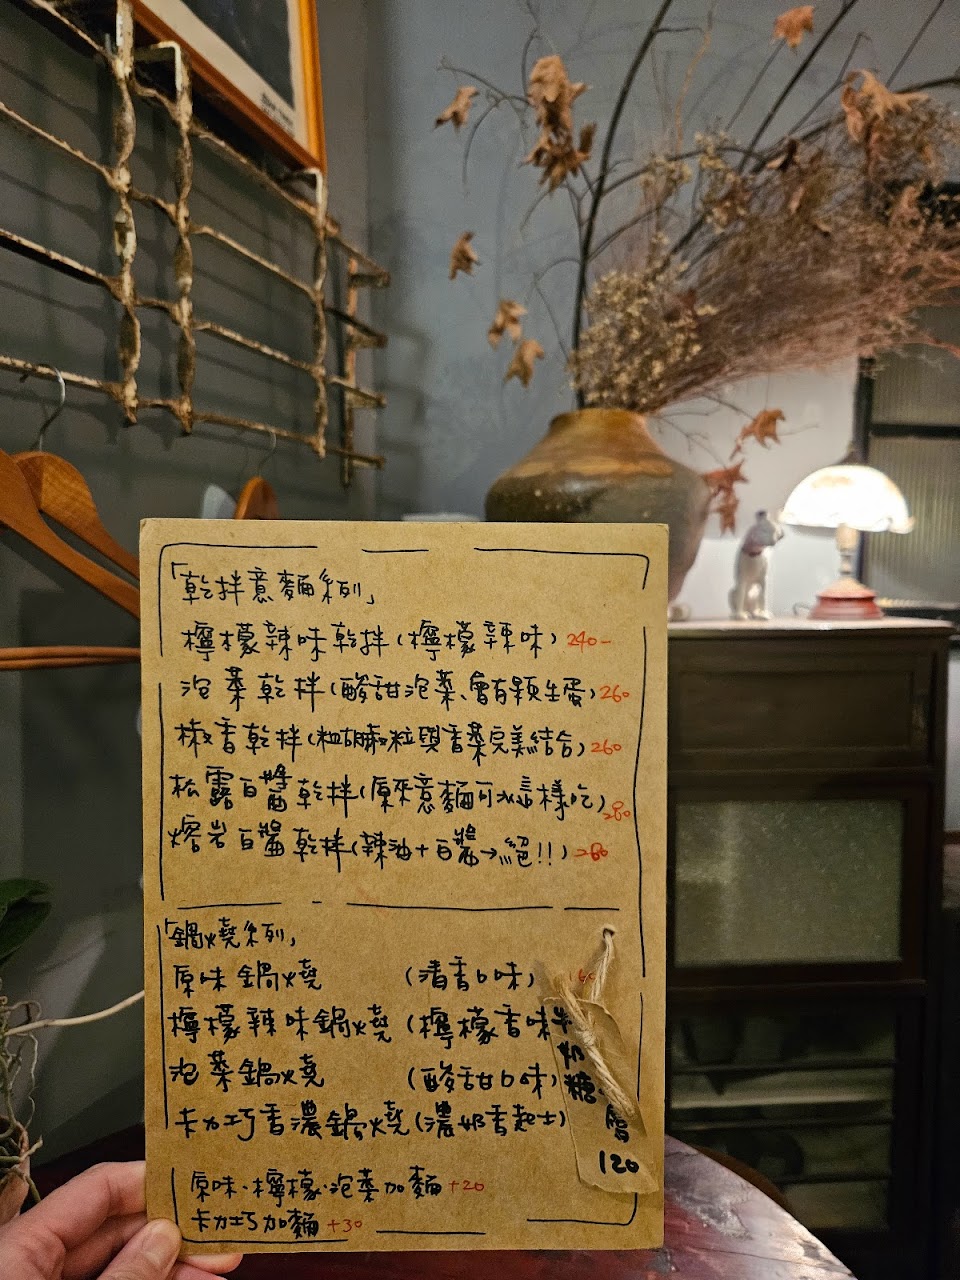 「乾拌意麵系列」
檸檬辣味乾拌(檸檬辣味) 240-
泡菜乾拌(酸甜泡菜、會有顆生蛋) 260
椒香乾拌(粗胡椒粒與香菜完美結合) 260
松露白醬乾拌(原來意麵可以這樣吃) 280
熔岩白醬乾拌(辣油+白醬→絕!!) 280
「鍋燒系列」
原味鍋燒 (清香口味) 160
檸檬辣味鍋燒 (檸檬香味
泡菜鍋燒 (酸甜口味)
卡力巧香濃鍋燒 (濃奶香起士)
原味、檸檬、泡菜加麵 +20
卡力巧加麵 +30
奶
糖
層
120